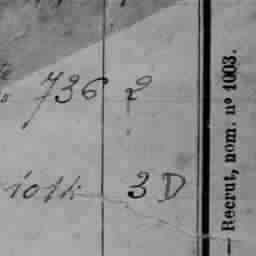 736 2
3 D
— Recrut, nom. nº 1003.